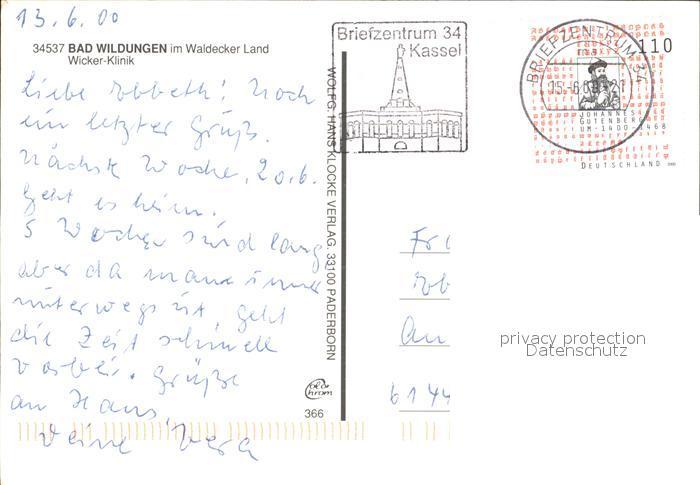 13.6.00
34537 BAD WILDUNGEN im Waldecker Land
Wicker-Klinik
Liebe Ebbeth! Noch
ein letzter Gruß.
Nächste Woche, 20.6.
geht es heim.
5 Wochen sind lang
aber da man immer
unterwegs ist, geht
die Zeit schnell
vorbei. Grüße
an Hans,
Deine Vera
WOLFG. HANS KLOCKE VERLAG, 33100 PADERBORN
color
chrom
366
Briefzentrum 34
Kassel
BRIEFZENTRUM 34
110
JOHANNES
GUTENBERG
UM·1400–1468
DEUTSCHLAND 2000
Fr
Eb
An
6144
privacy protection
Datenschutz